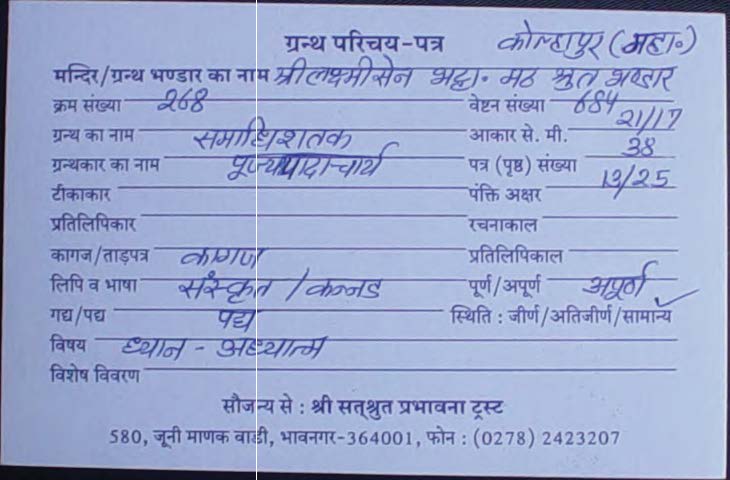 ग्रन्थ परिचय-पत्र कोल्हापुर (महा॰)
मन्दिर/ग्रन्थ भण्डार का नाम श्रीलक्ष्मीसेन भट्टा॰ मठ श्रुत भण्डार
क्रम संख्या 268 वेष्टन संख्या 684
ग्रन्थ का नाम समाधिशतक आकार से. मी. 21/17
ग्रन्थकार का नाम पूज्यपादाचार्य पत्र (पृष्ठ) संख्या 38
टीकाकार पंक्ति अक्षर 13/25
प्रतिलिपिकार रचनाकाल
कागज/ताड़पत्र कागज प्रतिलिपिकाल
लिपि व भाषा संस्कृत / कन्नड पूर्ण/अपूर्ण अपूर्ण
गद्य/पद्य पद्य स्थिति : जीर्ण/अतिजीर्ण/सामान्य
विषय ध्यान - अध्यात्म
विशेष विवरण
सौजन्य से : श्री सत्श्रुत प्रभावना ट्रस्ट
580, जूनी माणक वाडी, भावनगर-364001, फोन : (0278) 2423207